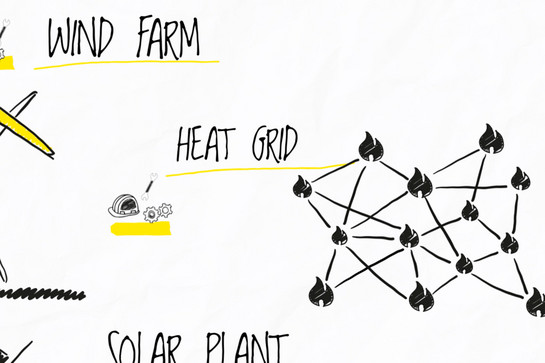 WIND FARM
HEAT GRID
SOLAR PLANT